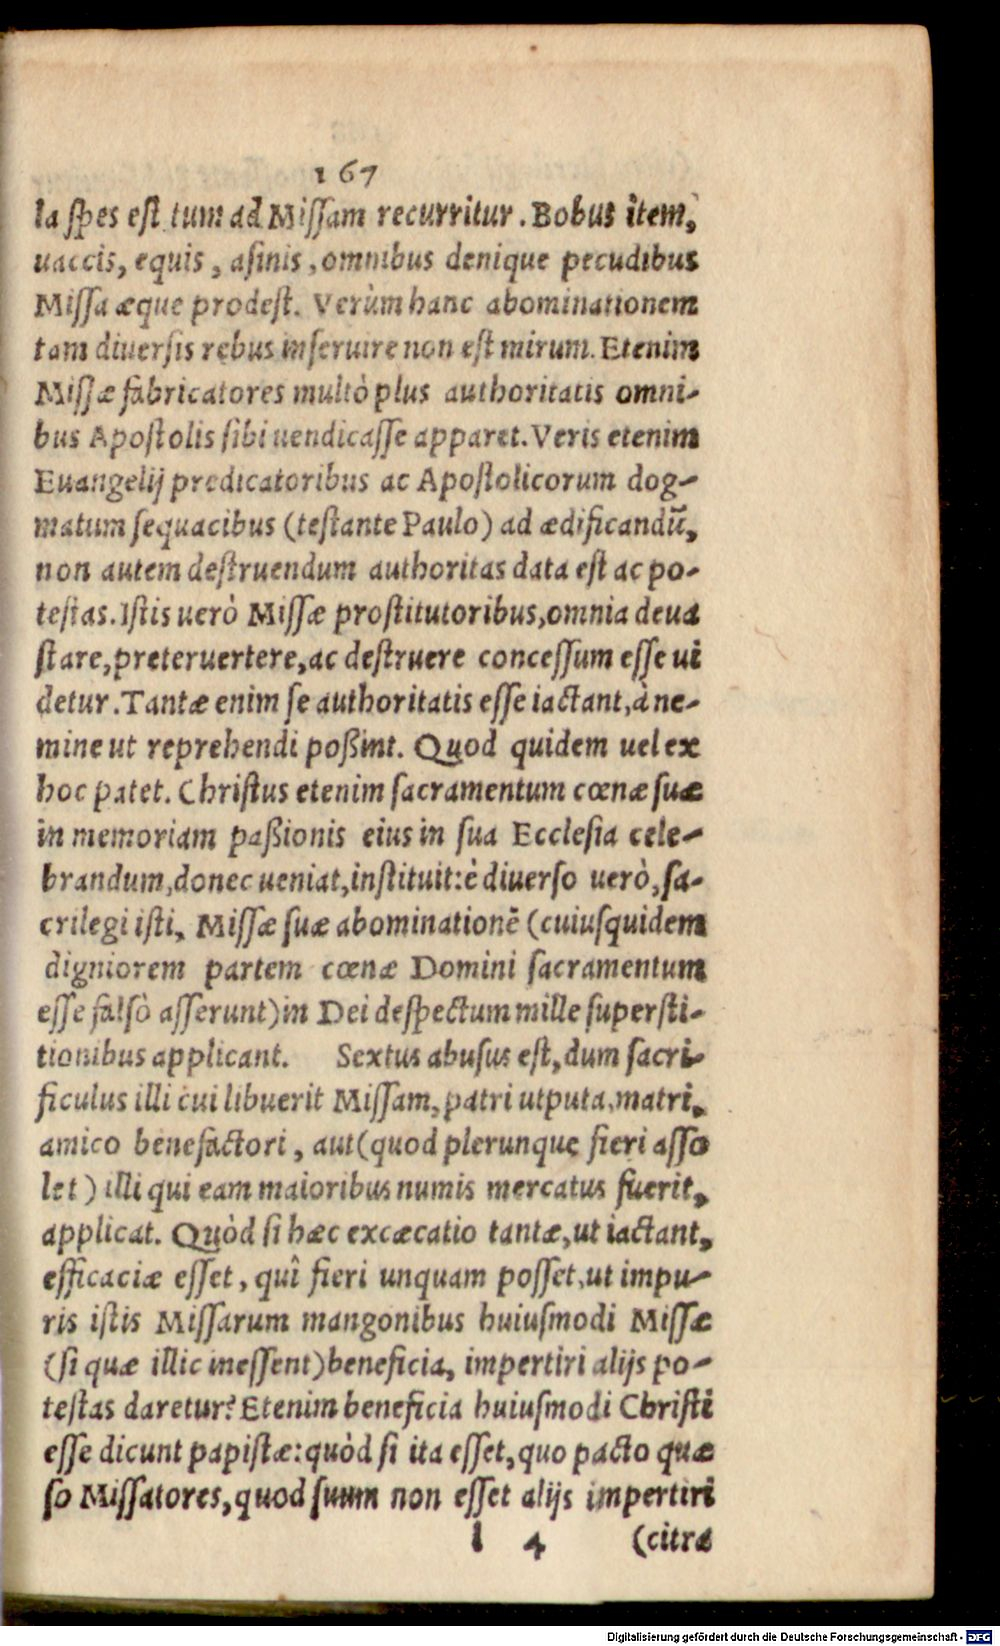 167
la spes est tum ad Missam recurritur. Bobus item,
uaccis, equis, asinis, omnibus denique pecudibus
Missa æque prodest. Verùm hanc abominationem
tam diuersis rebus inseruire non est mirum. Etenim
Missæ fabricatores multò plus authoritatis omni-
bus Apostolis sibi uendicasse apparet. Veris etenim
Euangelij predicatoribus ac Apostolicorum dog-
matum sequacibus (testante Paulo) ad ædificandū,
non autem destruendum authoritas data est ac po-
testas. Istis uerò Missæ prostitutoribus, omnia deua
stare, preteruertere, ac destruere concessum esse ui
detur. Tantæ enim se authoritatis esse iactant, à ne-
mine ut reprehendi poßint. Quod quidem uel ex
hoc patet. Christus etenim sacramentum cœnæ suæ
in memoriam paßionis eius in sua Ecclesia cele-
brandum, donec ueniat, instituit: è diuerso uerò, sa-
crilegi isti, Missæ suæ abominationē (cuiusquidem
digniorem partem cœnæ Domini sacramentum
esse falsò asserunt) in Dei despectum mille supersti-
tionibus applicant. Sextus abusus est, dum sacri-
ficulus illi cui libuerit Missam, patri utputa, matri,
amico benefactori, aut (quod plerunque fieri asso
let) illi qui eam maioribus numis mercatus fuerit,
applicat. Quòd si hæc excæcatio tantæ, ut iactant,
efficaciæ esset, quî fieri unquam posset, ut impu-
ris istis Missarum mangonibus huiusmodi Missæ
(si quæ illic inessent) beneficia, impertiri alijs po-
testas daretur? Etenim beneficia huiusmodi Christi
esse dicunt papistæ: quòd si ita esset, quo pacto quæ
so Missatores, quod suum non esset alijs impertiri
l 4 (citra
Digitalisierung gefördert durch die Deutsche Forschungsgemeinschaft - DFG